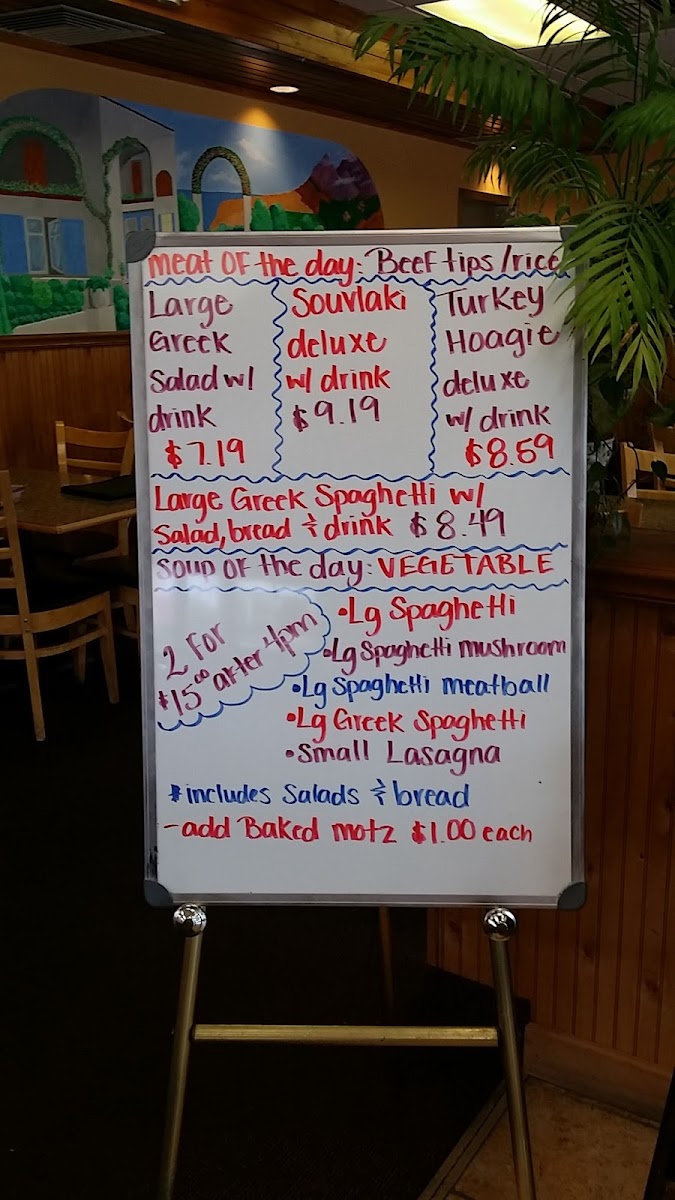 Meat OF the day: Beef tips/rice
Large
Greek
Salad w/
drink
$7.19
Souvlaki
deluxe
w/ drink
$9.19
Turkey
Hoagie
deluxe
w/ drink
$8.59
Large Greek Spaghetti w/
Salad, bread & drink $8.49
Soup of the day: VEGETABLE
2 For
$15.00 after 4pm
•Lg Spaghetti
•Lg Spaghetti mushroom
•Lg Spaghetti meatball
•Lg Greek Spaghetti
•Small Lasagna
*includes Salads & bread
-add Baked motz $1.00 each